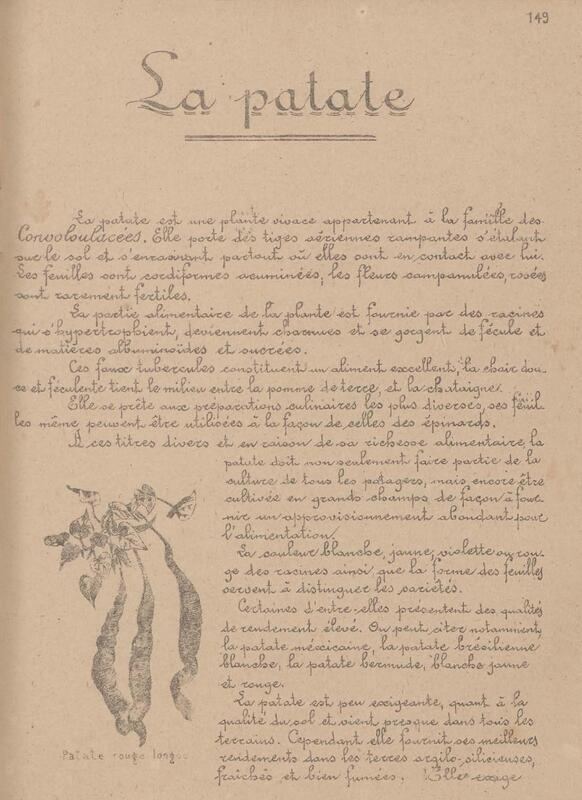 149
La patate
La patate est une plante vivace appartenant à la famille des
Convolvulacées. Elle porte des tiges aériennes rampantes s'étalant
sur le sol et s'enracinant partout où elles sont en contact avec lui.
Les feuilles sont cordiformes acuminées, les fleurs campanulées, rosées
sont rarement fertiles.
La partie alimentaire de la plante est fournie par des racines
qui s'hypertrophient, deviennent charnues et se gorgent de fécule et
de matières albuminoïdes et sucrées.
Ces faux tubercules constituent un aliment excellent, la chair dou-
ce et féculente tient le milieu entre la pomme de terre, et la chataigne.
Elle se prête aux préparations culinaires les plus diverses, ses feuil-
les même peuvent être utilisées à la façon de celles des épinards.
A ces titres divers et en raison de sa richesse alimentaire, la
patate doit non seulement faire partie de la
culture de tous les potagers, mais encore être
cultivée en grands champs de façon à four-
nir un approvisionnement abondant pour
l'alimentation.
La couleur blanche, jaune, violette ou rou-
ge des racines ainsi que la forme des feuilles
servent à distinguer les variétés.
Certaines d'entre elles présentent des qualités
de rendement élevé. On peut citer notamment,
la patate mexicaine, la patate brésilienne
blanche, la patate bermude, blanche jaune
et rouge.
La patate est peu exigeante, quant à la
qualité du sol et vient presque dans tous les
terrains. Cependant elle fournit ses meilleurs
rendements dans les terres argilo-silicieuses,
fraîches et bien fumées. Elle exige
Patate rouge longue